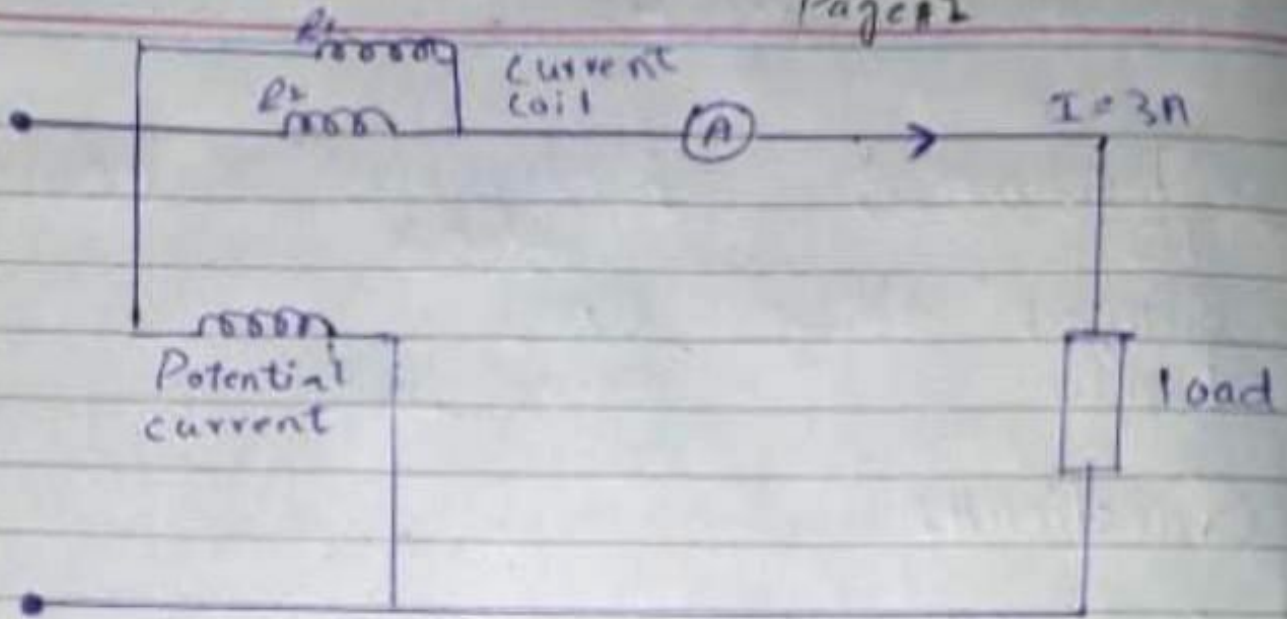 Page#2
R1
current
coil
R2
A
I = 3A
Potential
current
load